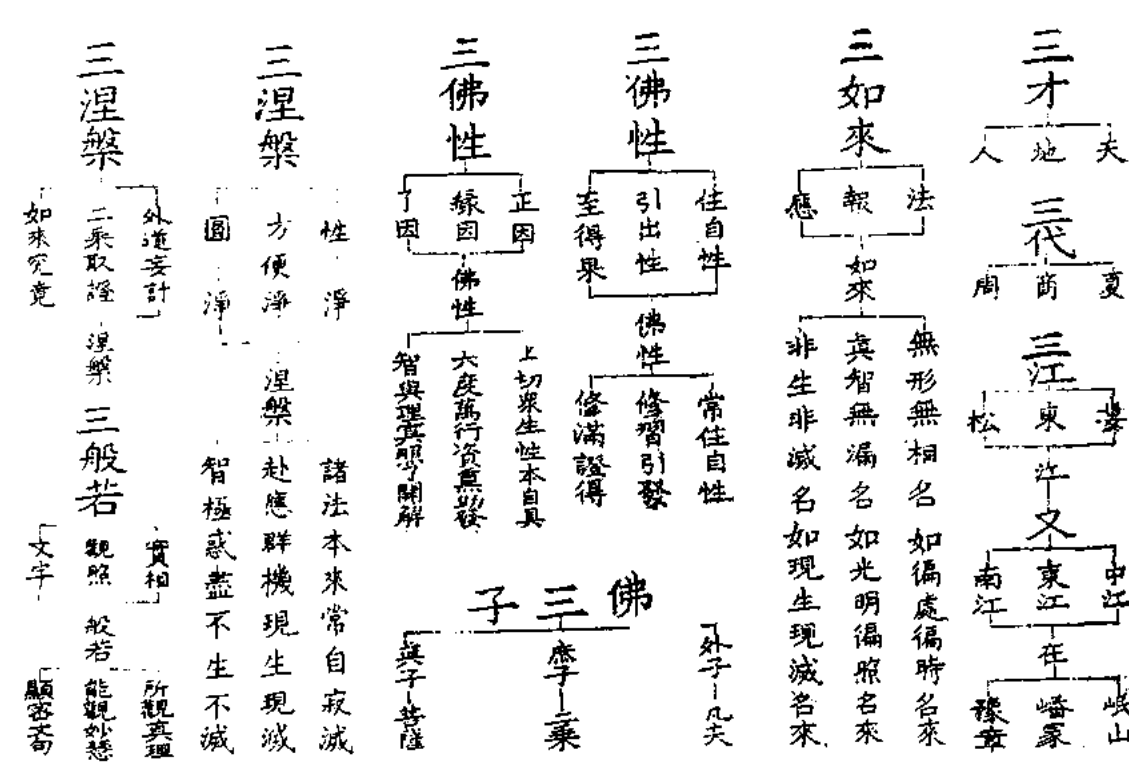 三才
夫
地
人
三代
夏
商
周
三江
婁
東
松
江
又
中江
東江
南江
在
岷山
嶓冢
豫章
三如來
法
報
應
如來
無形無相名如徧處徧時名來
真智無漏名如光明徧照名來
非生非滅名如現生現滅名來
三佛性
住自性
引出性
至得果
佛性
常住自性
修習引發
修滿證得
三佛性
正因
緣因
了因
佛性
上切衆生性本自具
六度萬行資熏助發
智與理冥照了開解
佛三子
外子 凡夫
庶子 二乘
真子 菩薩
三涅槃
性淨
方便淨
圓淨
涅槃
諸法本來常自寂滅
赴應群機現生現滅
智極惑盡不生不滅
三涅槃
外道妄計
二乘取證
如來究竟
涅槃
三般若
實相
觀照
文字
般若
所觀真理
能觀妙慧
顯密文句